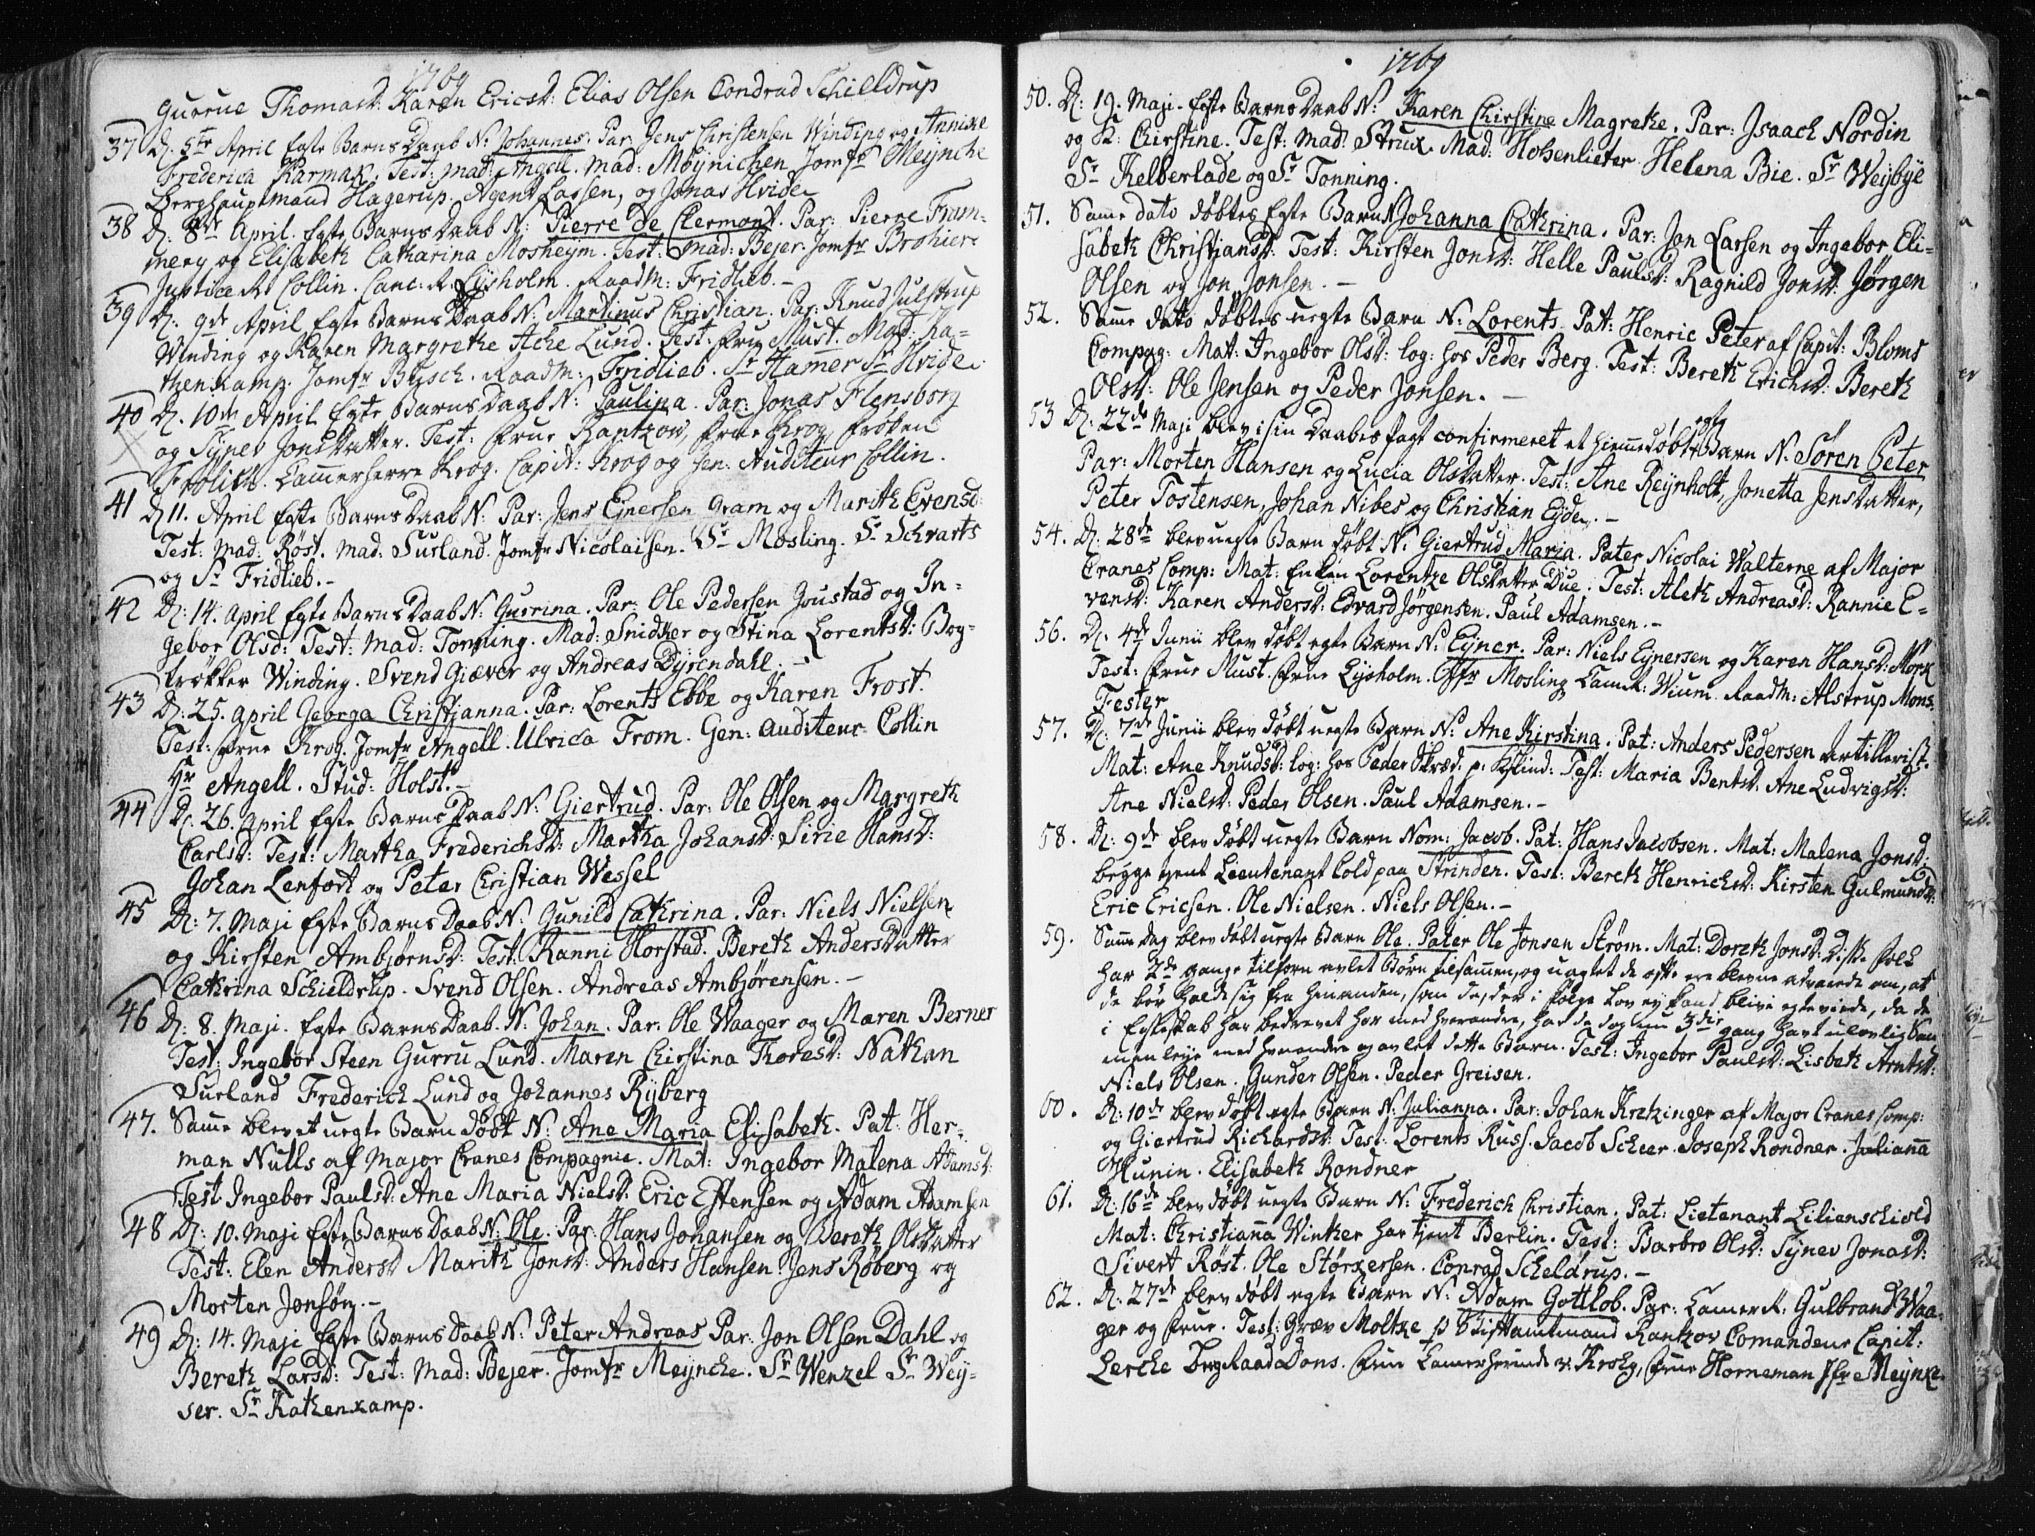 1769
Gurrue Thomasd: Karen Ericsd: Elias Olsen Condrad Schielldrup
37 D. 5te April Egte Barns Daab N: Johannes. Par: Jens Christensen Winding og Annixe
Frederica Karmak. Test: Mad: Angell. Mad: Möynichen Jomfr Meyncke
Berghauptmand Hagerup. Agent Lassen, og Jonas Hvide
38 D: 8de April. Egte Barns Daab N: Pierre de Clermont. Par: Pierre From-
mery og Elisabeth Catharina Mosheym. Test: Mad: Bejer. Jomfr Brohier
Justice R: Collin. Canc: R: Lysholm. Raadm: Fridlieb.-
39 D: 9de April Egte Barns Daab N: Martinus Christian. Par: Knud Julstrup
Winding og Karen Margrethe Ache Lund. Test: Frue Must. Mad: Ka-
thenkamp. Jomfr Busch. Raadm: Fridlieb. Sr Hamer Sr Hvide.
40 D. 10de April Egte Barns Daab N: Paulina. Par: Jonas Flensborg
og Synev Jonsdatter. Test: Frue Rantzow, Frue Krog, Fröken
Frölich. Cammerherre Krog. Capit: Krog og Gen: Auditeur Collin.
41 D 11. April Egte Barns Daab N: Par: Jens Ejnersen Gram og Marith Evensd:
Test: Mad: Röst. Mad: Surland. Jomfr Nicolaisen. Sr Mosling. Sr Schvarts
og Sr Fridlieb.-
42 D: 14. April Egte Barns Daab N: Gurrina. Par: Ole Pedersen Joustad og In-
gebor Olsd: Test: Mad: Tonning. Mad: Snidker og Stina Lorentsd: Bog-
trökker Winding. Svend Giæver og Andreas Dyrendahl.-
43 D: 25. April Georga Christjanna. Par: Lorents Ebbe og Karen Frost.
Test: Frue Krog. Jomfr Angell. Ulrica From. Gen: Auditeur Collin
Hr Angell. Stud: Holst.-
44 D. 26. April Egte Barns Daab N: Giertrud. Par: Ole Olsen og Margreth
Carlsd: Test: Martha Frederichsd: Martha Johansd: Sirie Hansd:
Johan Lenfort og Peter Christian Wessel
45 D: 7. Maji Egte Barns Daab N: Gunild Cathrina. Par: Niels Nielsen
og Kirsten Ambjörnsd: Test: Ranni Horstad. Bereth Andersdatter
Cathrina Schieldrup. Svend Olsen. Andreas Ambjörensen.-
46 D: 8. Maji. Egte Barns Daab. N: Johan. Par: Ole Waager og Maren Berner
Test: Ingebor Steen Gurru Lund. Maren Chirstina Thoresd: Nathan
Surland Frederich Lund og Johannes Ryberg
47. Samme blev et uegte Barn döbt N: Ane Maria Elisabeth. Pat: Her-
man Nulls af Major Cranes Compagnie. Mat: Ingebor Malena Adamsd:
Test: Ingebor Paulsd: Ane Maria Nielsd: Eric Estensen og Adam Adamsen
48 D: 10. Maji Egte Barns Daab N: Ole. Par: Hans Johansen og Bereth Olsdatter
Test: Elen Andersd Marith Jonsd: Anders Hansen Jens Röberg og
Morten Jonsön.-
49 D: 14. Maji Egte Barns Daab N: Peter Andreas Par: Jon Olsen Dahl og
Bereth Larsd: Test: Mad: Bejer. Jomfr Meyncke. Sr Wenzel Sr Wey-
ser. Sr Kathenkamp.
1769
50. D: 19. Maji. Egte Barns Daab N: Karen Chirstine Magrethe. Par: Isaach Nordin
og K: Chirstine. Test: Mad: Strux. Mad: Hohenlieter. Helena Bie. Sr Weybye
Sr Kelberlade og Sr Tonning.
51. Same dato döbtes Egte Barn N: Johanna Cathrina. Par: Jon Larsen og Ingebor Eli-
sabeth Christjansd: Test: Kirsten Jonsd: Helle Paulsd: Ragnild Jonsd: Jörgen
Olsen og Jon Jonsen.-
52. Same dato döbtes uegte Barn N: Lorents. Pat: Henric Peter af Capit: Bloms
Compag: Mat: Ingebor Olsd: log: hos Peder Berg. Test: Bereth Erichsd: Bereth
Olsd: Ole Jensen og Peder Jonsen.-
53 D: 22de Maji blev i sin Daabes Pagt confirmeret et hiemmedöbt egte Barn N: Sören Peter
Par: Morten Hansen og Lucia Olsdatter. Test: Ane Reynholt, Jonetta Jensdatter,
Peter Tostensen, Johan Nibes og Christian Eyde.-
54. D: 28de blev uegte Barn döbt N: Giertrud Maria. Pater Nicolai Walterne af Major
Cranes Comp: Mat: Enken Lorentze Olsdatter Due. Test: Aleth Andreasd: Rannie E-
vensd: Karen Andersd: Edvard Jörgensen. Paul Adamsen.-
56. D: 4de Junii blev döbt egte Barn N: Ejner. Par: Niels Ejnersen og Karen Hansd: Mörk
Test: Frue Must. Frue Lysholm. Jfr Mosling Cam: R: Wium. Raadm: Alstrup Mons.
Fester
57. D: 7de Junii blev döbt uegte Barn N: Ane Kirstina. Pat: Anders Pedersen Artillerist.
Mat: Ane Knudsd: log: hos Peder Skræd: p: Kskind: Test: Maria Bentsd. Ane Ludvigsd:
Ane Nielsd: Peder Olsen. Paul Adamsen.-
58. D: 9de blev döbt uegte Barn Nom: Jacob. Pat: Hans Jacobsen. Mat: Malena Jonsd:
begge tjent Lieutenant Cold paa Strinden. Test: Bereth Henrichsd: Kirsten Gulmundsd:
Eric Ericsen. Ole Nielsen. Niels Olsen.-
59. Same Dag blev döbt uegte Barn Ole. Pater Ole Jonsen Ström. Mat: Doreth Jonsd: Disse Folk
har 2de gange tilforn avlet Börn tilsammen, og uagtet de ofte ere blevne advarede om, at
de bör holde sig fra hinanden, som de, der i fölge Lov ej kand blive egteviede, da de
i Egteskab har bedrevet hor med hverandre, har de dog nu 3die gang havt ulovlig Sam
menleje med hverandre og avlet dette Barn. Test: Ingebor Paulsd: Lisbeth Arntsd:
Niels Olsen. Gunder Olsen. Peder Greisen.
60. D: 10de blev döbt egte Barn N: Julianna. Par: Johan Kretzinger af Major Cranes Comp:
og Giertrud Richardsd: Test: Lorents Russ. Jacob Scheer. Joseph Rondner. Julianna
Hunin. Elisabeth Rondner
61. D: 16de blev döbt uegte Barn N: Frederich Christian. Pat: Lietenant Lilienschiold
Mat: Christianna Winther har tjent Berlin. Test: Barbro Olsd: Synev Jonasd:
Sivert Röst. Ole Störkersen. Conrad Scheldrup.-
62. D: 27de blev döbt egte Barn N: Adam Gottlob. Par: Camer R: Gulbrand Waa-
ger og Frue. Test: Græv Moltke Stiftamtmand Rantzov Comandeur Capit:
Lerche BergRaad Dons. Frue Camerherinde v: Krohg, Frue Horneman Jfr Meynke.